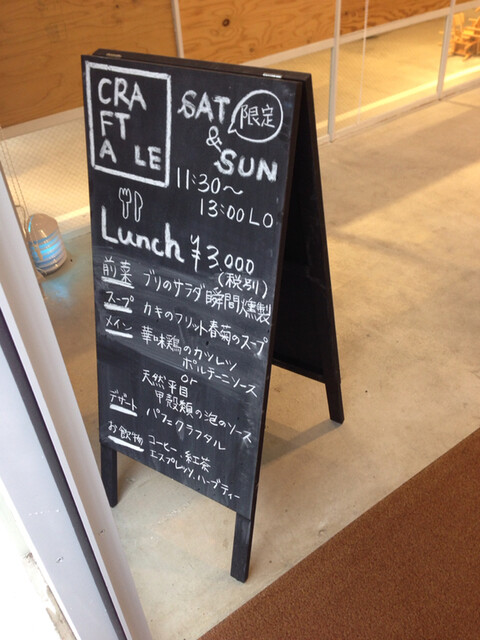 CRA
FT
A LE
SAT 限定
&
SUN
11:30〜
13:00 LO
Lunch ¥3,000
(税別)
前菜 ブリのサラダ 瞬間燻製
スープ カキのフリット 春菊のスープ
メイン 華味鶏のカツレツ
ポルチーニソース
or
天然平目
甲殻類の泡のソース
デザート パフェクラフタル
お飲物 コーヒー、紅茶
エスプレッソ、ハーブティー